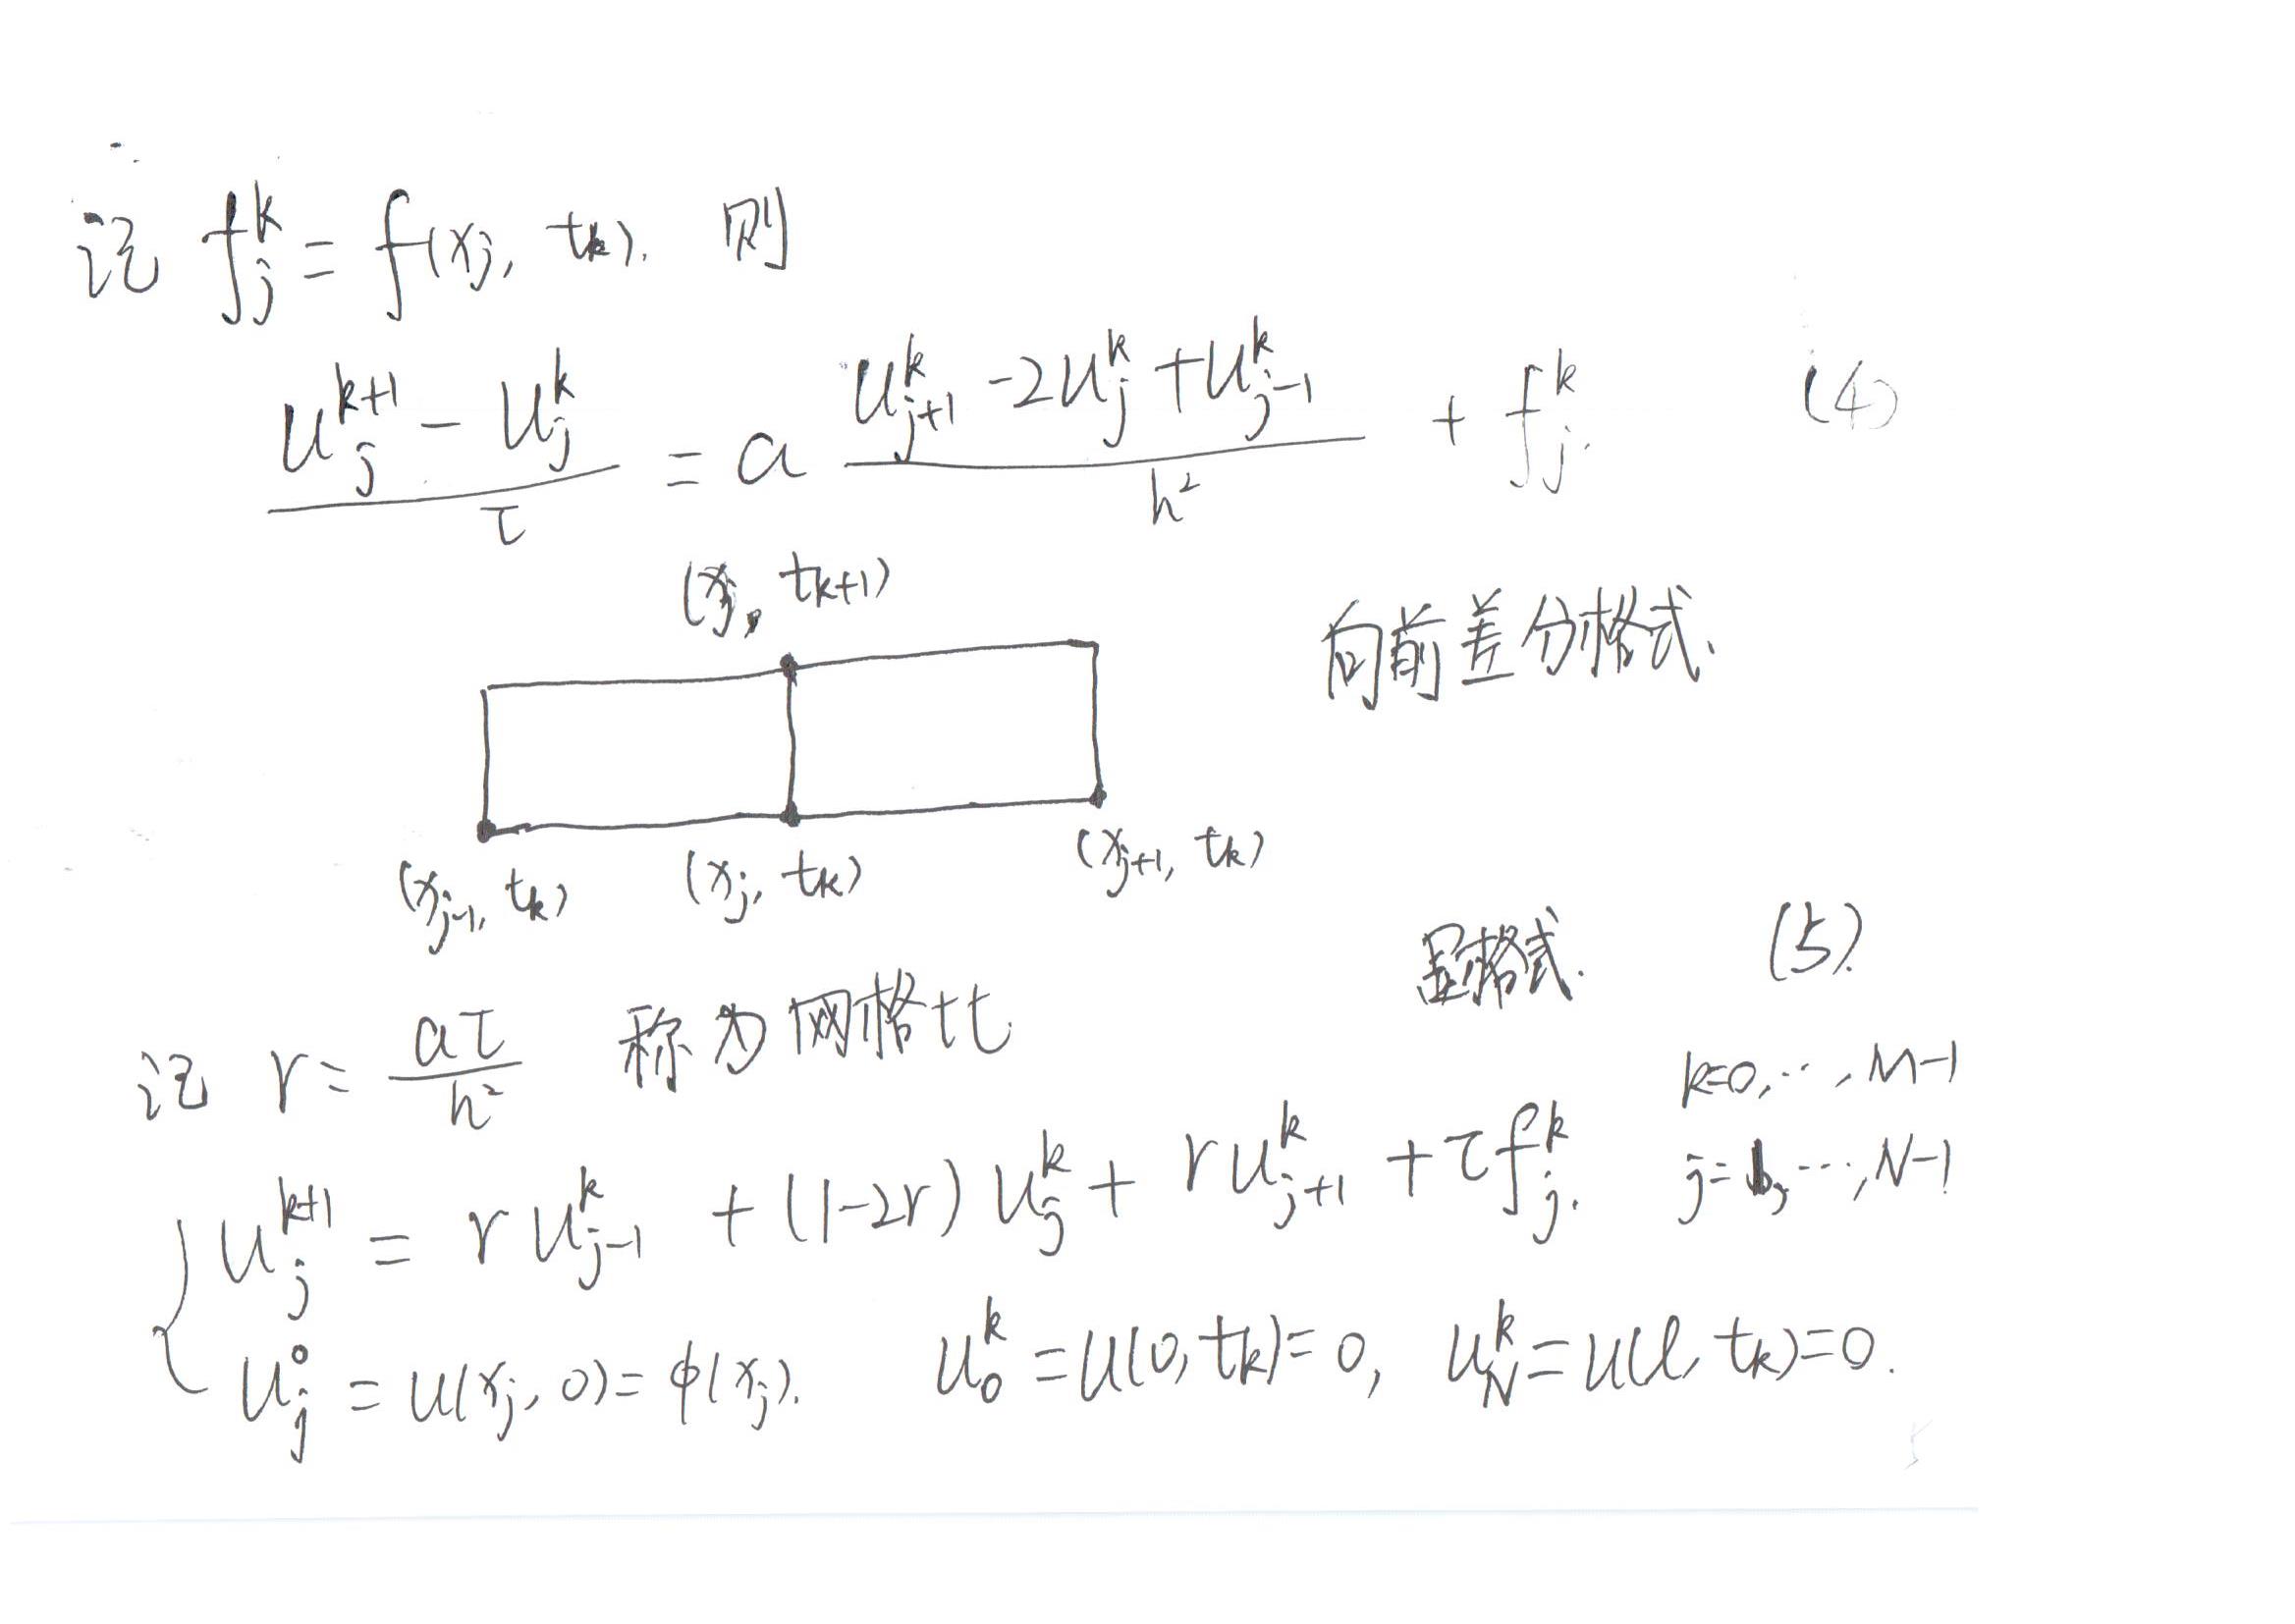 记 f_j^k = f(x_j, t_k). 则
\frac{u_j^{k+1} - u_j^k}{τ} = a \frac{u_{j+1}^k - 2u_j^k + u_{j-1}^k}{h^2} + f_j^k. (4)
(x_j, t_{k+1})
向前差分格式.
(x_{j-1}, t_k) (x_j, t_k) (x_{j+1}, t_k)
显格式. (5).
记 r = \frac{aτ}{h^2} 称为网格比.
k=0, ..., M-1
u_j^{k+1} = r u_{j-1}^k + (1-2r) u_j^k + r u_{j+1}^k + τ f_j^k. j=1, ..., N-1
u_j^0 = u(x_j, 0) = φ(x_j). u_0^k = u(0, t_k) = 0, u_N^k = u(l, t_k) = 0.